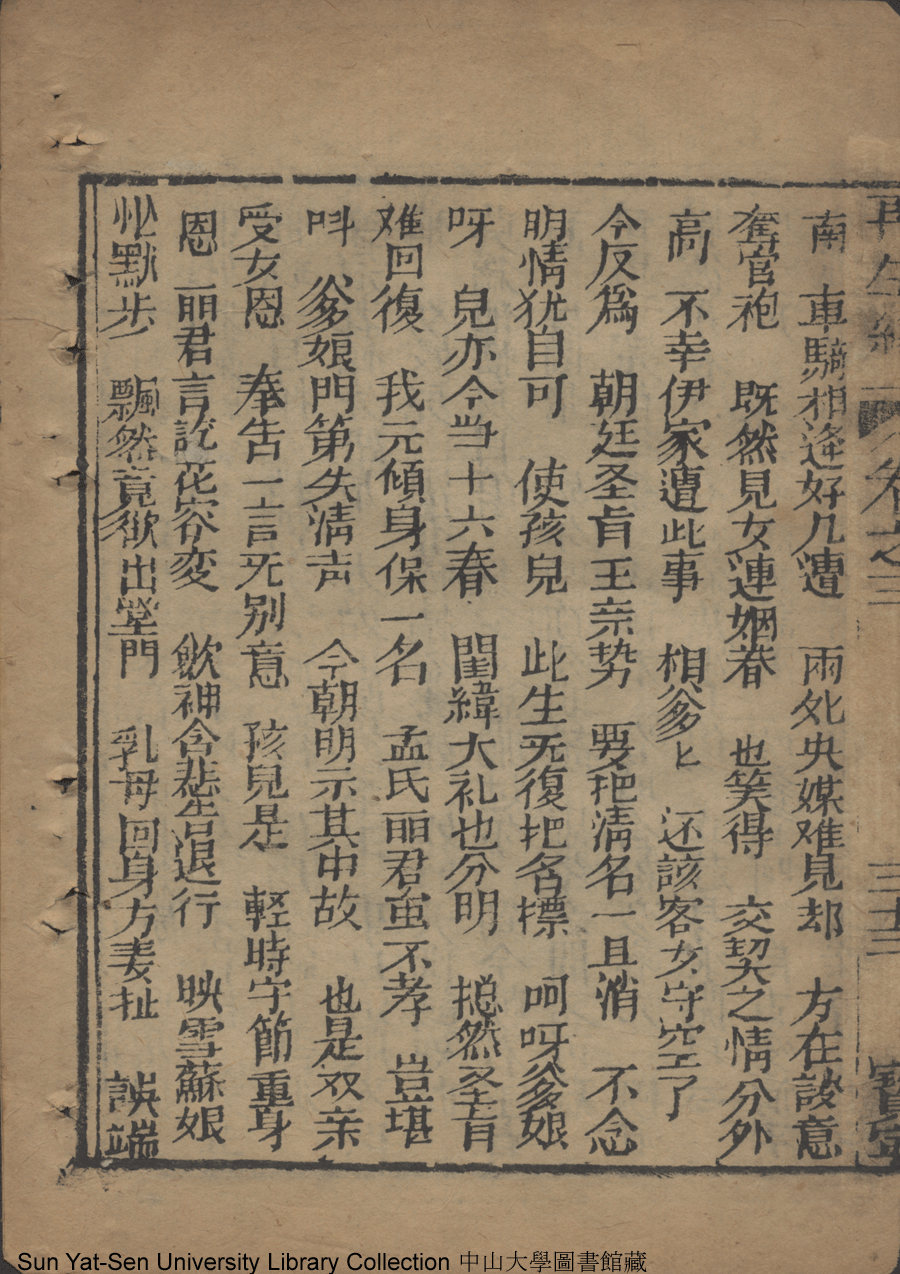 再生緣 卷之三 三十三
南 車騎相逢好几遭 兩処央媒难見却 方在談意
奪官袍 既然見女連姻眷 也笑得 交契之情分外
高 不幸伊家遭此事 相爹匕 还該客女守空了
今反爲 朝廷圣㫖王亲势 要把清名一旦消 不念
明情犹自可 使孩兒 此生旡復把名摽 呵呀爹娘
呀 兒亦今当十六春 閨緯大礼也分明 㧾然圣㫖
难回復 我元傾身保一名 孟氏丽君虽不孝 豈堪
呌 爹娘門第失清声 今朝明示其中故 也是双亲
受女恩 奉告一言旡别意 孩兒是 輕時守節重身
恩 丽君言訖花容変 歛神含悲告退行 映雪蘇娘
忙默步 飄然竟欲出堂門 乳母回身方妻扯 誤端
Sun Yat-Sen University Library Collection 中山大學圖書館藏